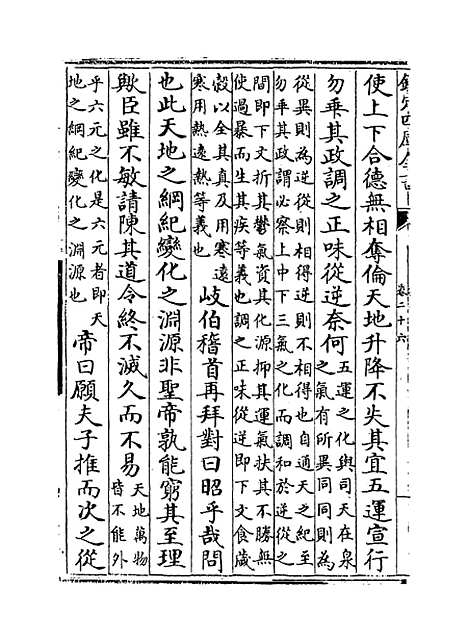 欽定四庫全書
卷二十六
使上下合德無相奪倫天地升降不失其宜五運宣行
勿乖其政調之正味從逆奈何
五運之化與司天在泉
之氣有所異同同則為
從異則為逆從則相得逆則不相得也自通天之紀至
勿乖其政謂必察上中下三氣之化而調和於逆從之
間即下文折其鬱氣資其化源抑其運氣扶其不勝無
使過暴而生其疾等義也調之正味從逆即下文食歲
穀以全其真及用寒遠
寒用熱遠熱等義也
岐伯稽首再拜對曰昭乎哉問
也此天地之綱紀變化之淵源非聖帝孰能窮其至理
歟臣雖不敏請陳其道令終不滅久而不易
天地萬物
皆不能外
乎六元之化是六元者即天
地之綱紀變化之淵源也
帝曰願夫子推而次之從